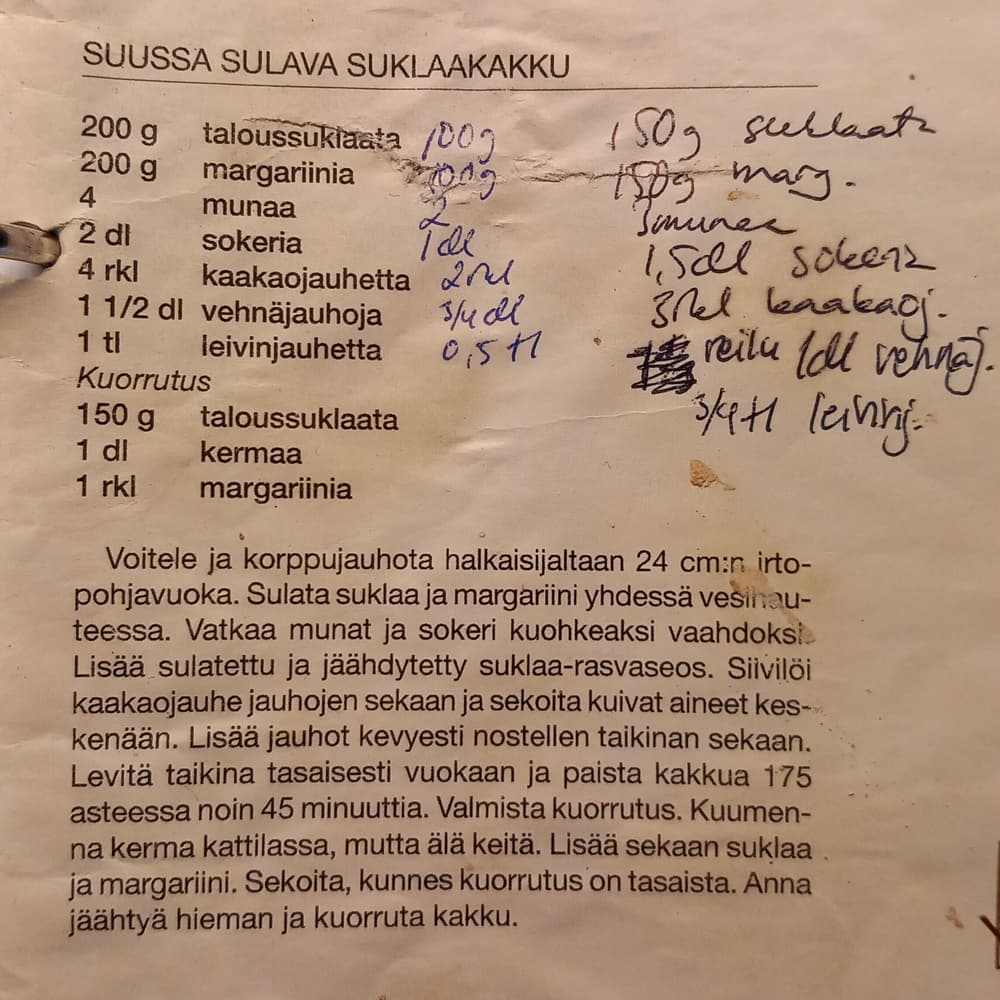 SUUSSA SULAVA SUKLAAKAKKU
200 g taloussuklaata 100g 150g suklaata
200 g margariinia 100g 150g marg.
4 munaa 2 3 munaa
2 dl sokeria 1 dl 1,5dl sokeria
4 rkl kaakaojauhetta 2 rkl 3 rkl kaakaoj.
1 1/2 dl vehnäjauhoja 3/4 dl reilu 1dl vehnäj.
1 tl leivinjauhetta 0,5 tl 3/4 tl leivinj.
Kuorrutus
150 g taloussuklaata
1 dl kermaa
1 rkl margariinia
Voitele ja korppujauhota halkaisijaltaan 24 cm:n irto-
pohjavuoka. Sulata suklaa ja margariini yhdessä vesihau-
teessa. Vatkaa munat ja sokeri kuohkeaksi vaahdoksi.
Lisää sulatettu ja jäähdytetty suklaa-rasvaseos. Siivilöi
kaakaojauhe jauhojen sekaan ja sekoita kuivat aineet kes-
kenään. Lisää jauhot kevyesti nostellen taikinan sekaan.
Levitä taikina tasaisesti vuokaan ja paista kakkua 175
asteessa noin 45 minuuttia. Valmista kuorrutus. Kuumen-
na kerma kattilassa, mutta älä keitä. Lisää sekaan suklaa
ja margariini. Sekoita, kunnes kuorrutus on tasaista. Anna
jäähtyä hieman ja kuorruta kakku.